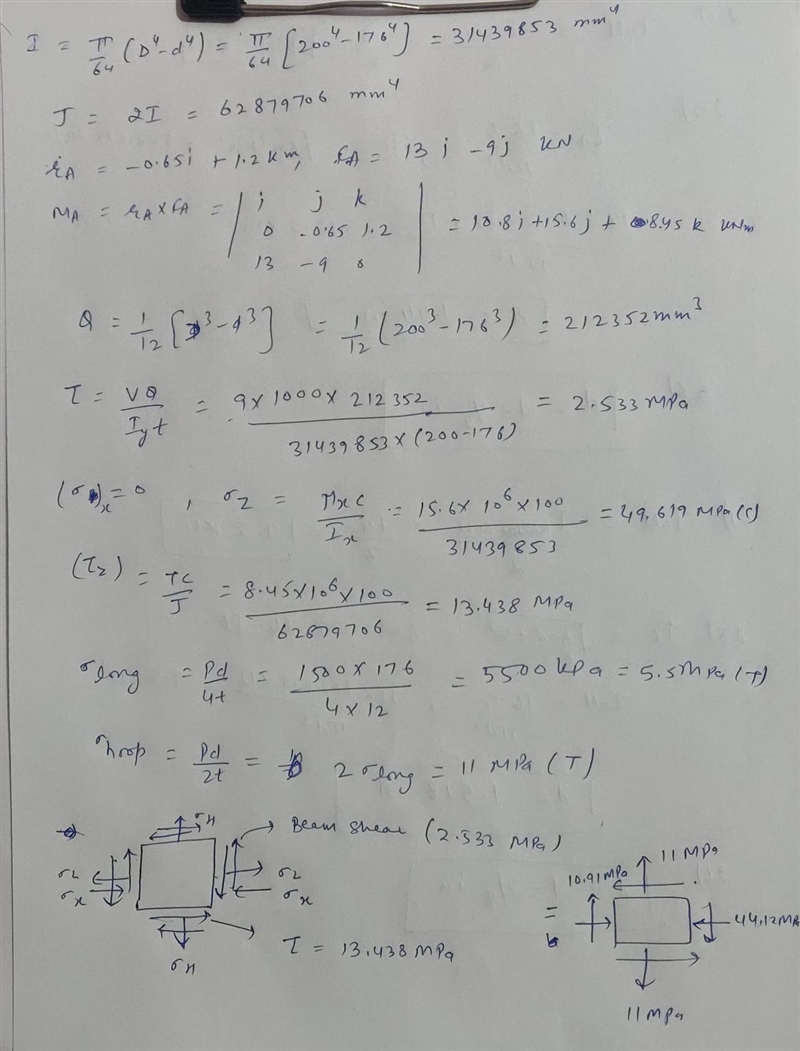 I = π/64 (D⁴-d⁴) = π/64 [200⁴-176⁴] = 31439853 mm⁴
J = 2I = 62879706 mm⁴
rA = -0.65j + 1.2 k m, FA = 13 i -9j kN
MA = rA x FA = | i j k
0 -0.65 1.2
13 -9 0 | = 10.8i +15.6j + 8.45 k kNm
Q = 1/12 [D³-d³] = 1/12 (200³-176³) = 212352 mm³
τ = VQ/Iyt = 9x1000x 212352 / 31439853 x (200-176) = 2.533 MPa
(σ)x = 0 , σz = Mxc/Ix = 15.6x 10⁶ x100 / 31439853 = 49.619 MPa (C)
(τz) = Tc/J = 8.45x10⁶x100 / 62879706 = 13.438 MPa
σlong = Pd/4t = 1500 x 176 / 4 x 12 = 5500 kPa = 5.5 MPa (T)
σhoop = Pd/2t = 2 σlong = 11 MPa (T)
σH
Beam Shear (2.533 MPa)
11 MPa
10.91 MPa
σL
σx
σL
σx
=
44.12 MPa
τ = 13.438 MPa
σH
11 MPa